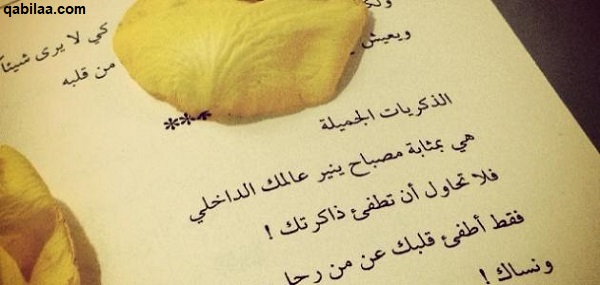 qabilaa.com
ولكن
كي لا يرى شيئاً
ويعيش
من قلبه .
***
الذكريات الجميلة
هي بمثابة مصباح ينير عالمك الداخلي
فلا تحاول أن تطفئ ذاكرتك !
فقط أطفئ قلبك عن من رحل
ونساك !